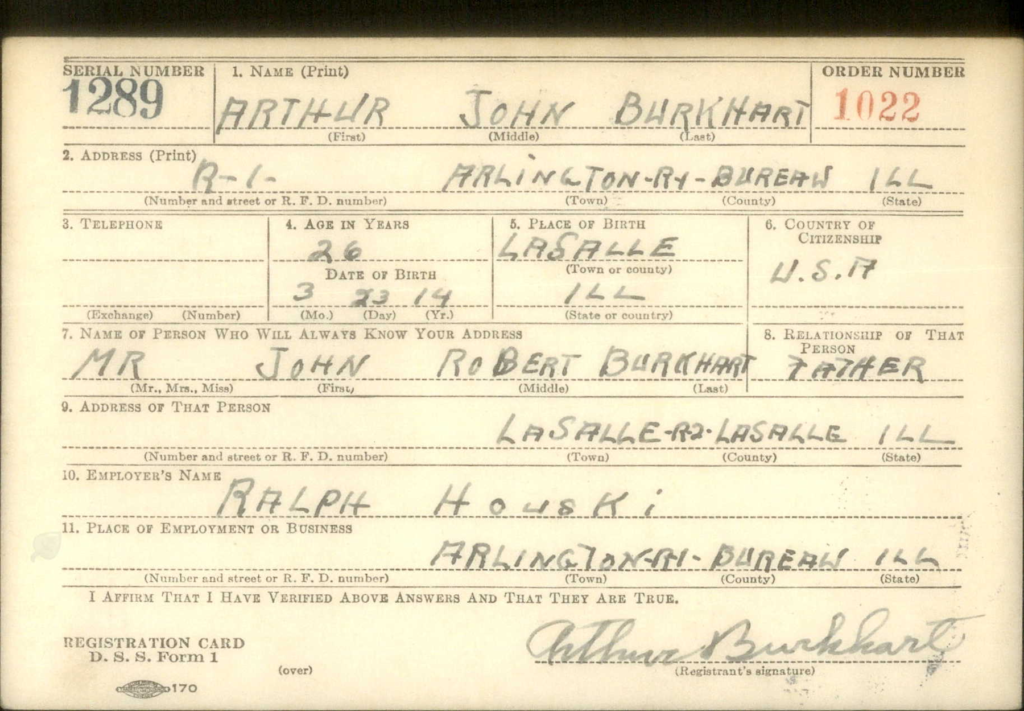 SERIAL NUMBER 1. NAME (Print) ORDER NUMBER
1289 ARTHUR JOHN BURKHART 1022
(First) (Middle) (Last)
2. ADDRESS (Print)
R-1- ARLINGTON-R1-BUREAU ILL
(Number and street or R. F. D. number) (Town) (County) (State)
3. TELEPHONE 4. AGE IN YEARS 5. PLACE OF BIRTH 6. COUNTRY OF CITIZENSHIP
26 LASALLE
DATE OF BIRTH (Town or county) U.S.A
3 23 14 ILL
(Exchange) (Number) (Mo.) (Day) (Yr.) (State or country)
7. NAME OF PERSON WHO WILL ALWAYS KNOW YOUR ADDRESS 8. RELATIONSHIP OF THAT PERSON
MR JOHN ROBERT BURKHART FATHER
(Mr., Mrs., Miss) (First) (Middle) (Last)
9. ADDRESS OF THAT PERSON
LASALLE-R2-LASALLE ILL
(Number and street or R. F. D. number) (Town) (County) (State)
10. EMPLOYER'S NAME
RALPH HOUSKi
11. PLACE OF EMPLOYMENT OR BUSINESS
ARLINGTON-R1-BUREAU ILL
(Number and street or R. F. D. number) (Town) (County) (State)
I AFFIRM THAT I HAVE VERIFIED ABOVE ANSWERS AND THAT THEY ARE TRUE.
REGISTRATION CARD
D. S. S. Form 1 Arthur Burkhart
(over) (Registrant's signature)
170